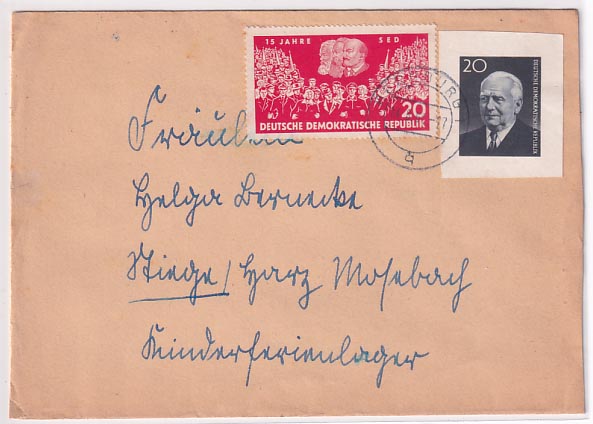 15 JAHRE SED
20
DEUTSCHE DEMOKRATISCHE REPUBLIK
20
DEUTSCHE DEMOKRATISCHE REPUBLIK
Fräulein
Helga Bernecke
Stiege/Harz Mosebach
Kinderferienlager